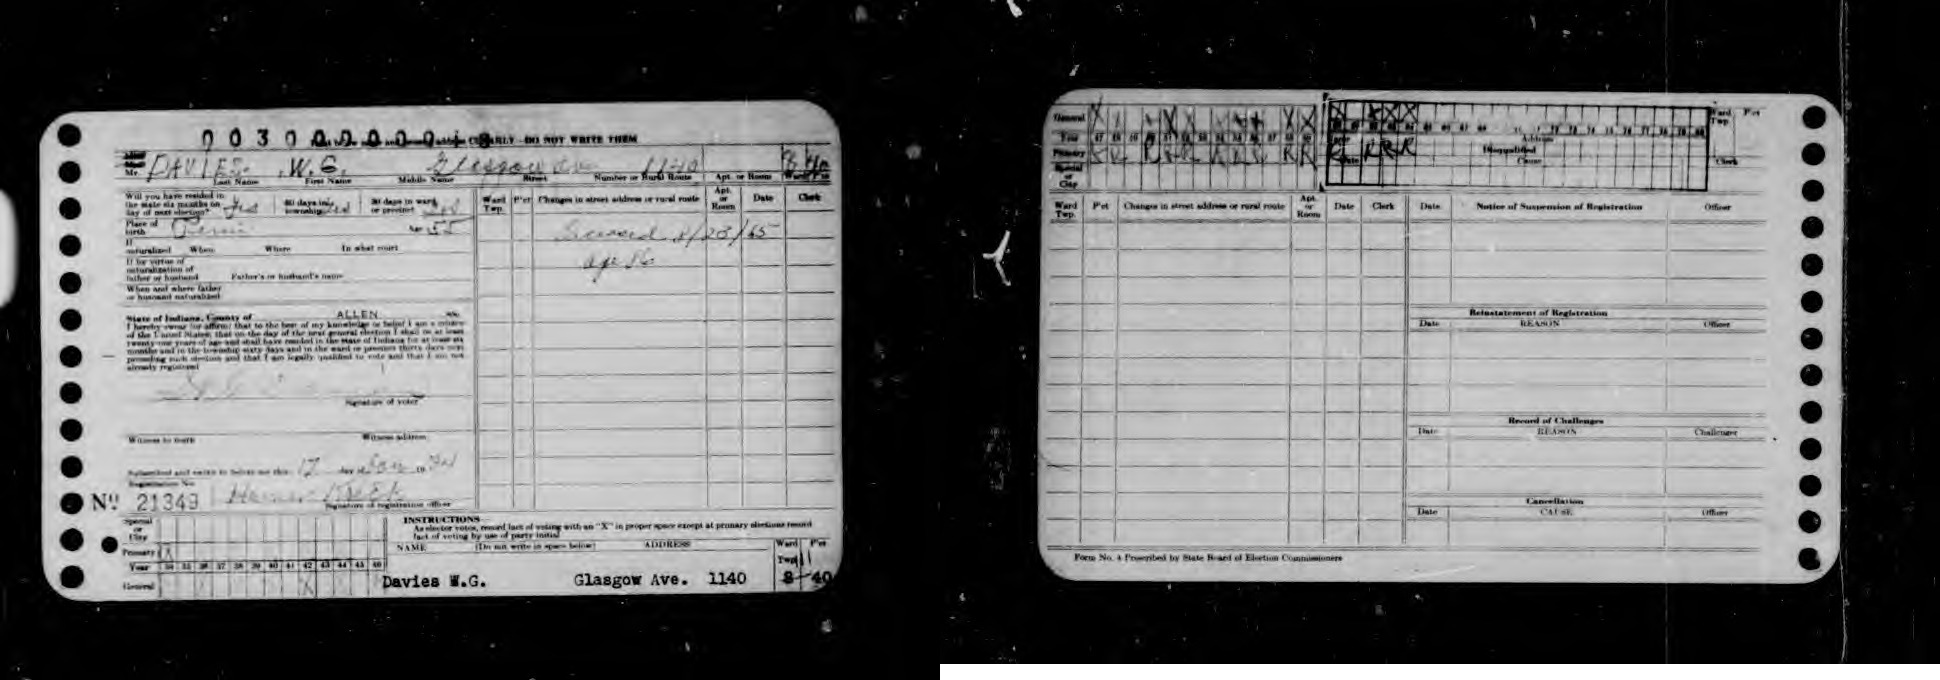 CLEARLY DO NOT WRITE THEM
Mr. DAVIES W.G. Glasgow Ave 1140 8 40
Last Name First Name Middle Name Street Number or Rural Route Apt. or Room Ward P'ct
Will you have resided in the state six months on day of next election? Yes 60 days in township Yes 30 days in ward or precinct Yes
Place of birth Age 55
If naturalized When Where In what court
If by virtue of naturalization of father or husband Father's or husband's name
When and where father or husband naturalized
State of Indiana, County of ALLEN
I hereby swear (or affirm) that to the best of my knowledge or belief I am a citizen
of the United States; that on the day of the next general election I shall be at least
twenty-one years of age and shall have resided in the state of Indiana for at least six
months and in the township sixty days and in the ward or precinct thirty days next
preceding such election and that I am legally qualified to vote and that I am not
already registered
Signature of voter
Witness to mark Witness address
Subscribed and sworn to before me this 17 day of Jan 19 34
Registration No.
Nº 21349
Signature of registration officer
Ward Twp. P'ct Changes in street address or rural route Apt. or Room Date Clerk
Deceased 8/20/65
age 86
Special or City
Primary X
Year 34 35 36 37 38 39 40 41 42 43 44 45 46
General X
INSTRUCTIONS
As elector votes, record fact of voting with an "X" in proper space except at primary elections record
fact of voting by use of party initial
NAME (Do not write in space below) ADDRESS Ward Twp. P'ct
Davies W.G. Glasgow Ave. 1140 8 40
General
Year 47 48 49 50 51 52 53 54 55 56 57 58 59
Primary
Special or City
Address
Disqualified
Date Cause Clerk
Ward Twp. P'ct
Ward Twp. P'ct Changes in street address or rural route Apt. or Room Date Clerk
Date Notice of Suspension of Registration Officer
Reinstatement of Registration
Date REASON Officer
Record of Challenges
Date REASON Challenger
Cancellation
Date CAUSE Officer
Form No. 4 Prescribed by State Board of Election Commissioners